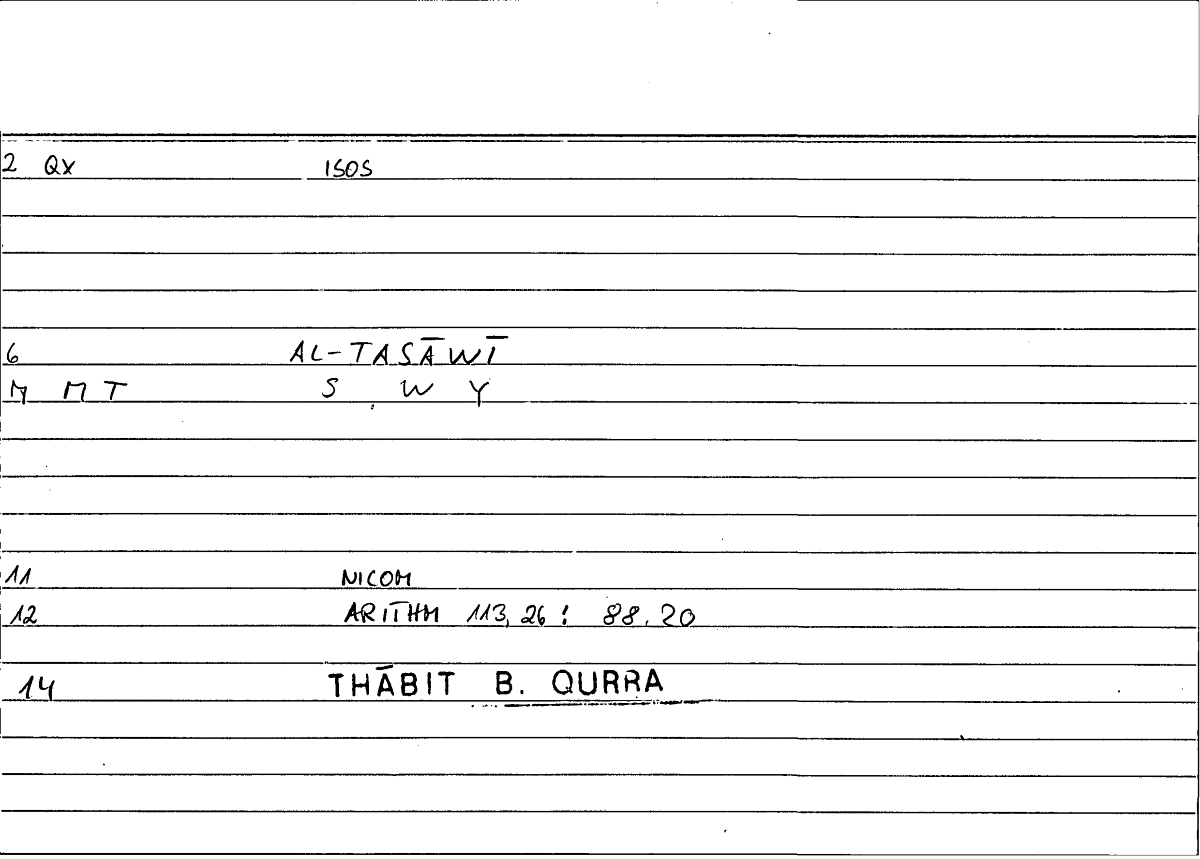 2 QX ISOS
6 AL-TASĀWĪ
M M T S W Y
11 NICOM
12 ARITHM 113,26 : 88.20
14 THĀBIT B. QURRA